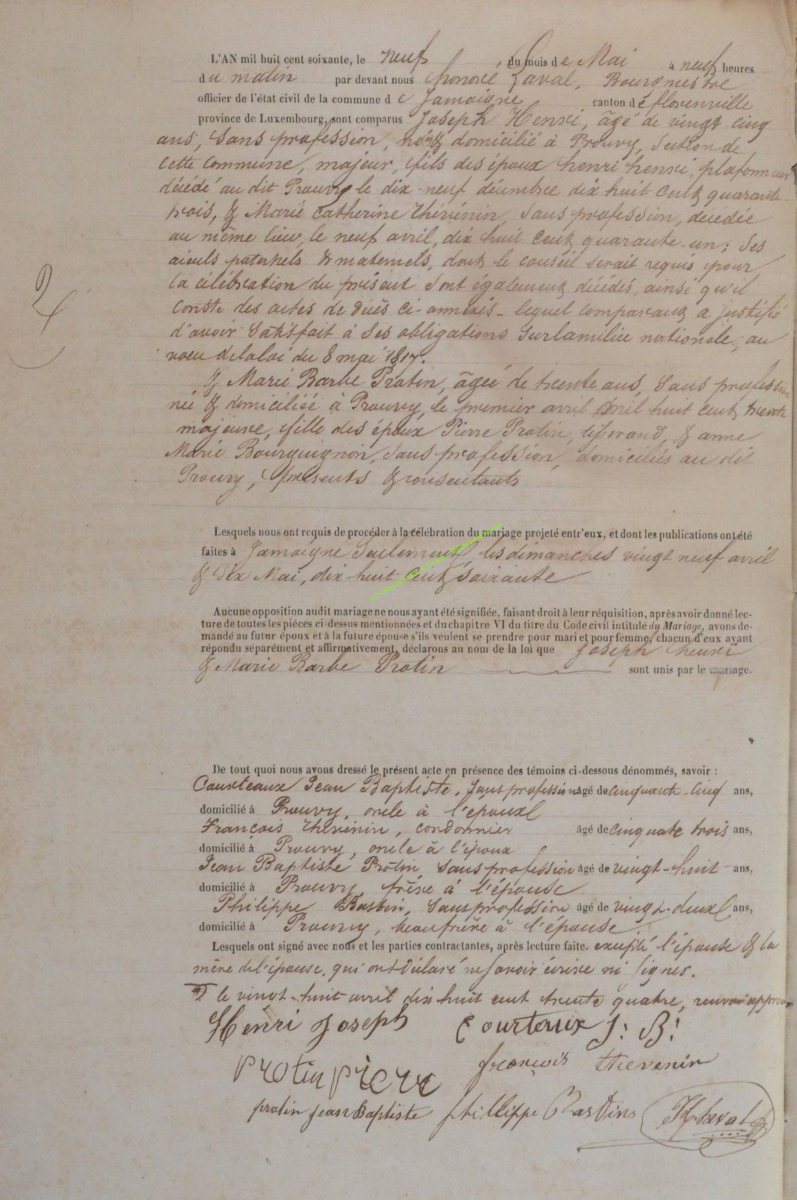 L'AN mil huit cent soixante, le neuf du mois de Mai à neuf heures
du matin par devant nous honoré Laval, Bourgmestre
officier de l'état civil de la commune de Jamoigne canton de florenville
province de Luxembourg, sont comparus Joseph Henri, âgé de vingt cinq
ans, sans profession, né & domicilié à Prouvy, section de
cette commune, majeur, fils des époux henri henri, plafonneur
décédé au dit Prouvy le dix-neuf décembre dix huit cent quarante
trois, & Marie Catherine thévénin, sans profession, décédée
au même lieu, le neuf avril, dix huit cent quarante-un; ses
aïeuls paternels & maternels, dont le conseil serait requis pour
la célébration du présent sont également décédés, ainsi qu'il
conste des actes de décès ci-annexés - lequel comparant a justifié
d'avoir satisfait à ses obligations sur la milice nationale, au
voeu de la loi du 8 mai 1817.
& Marie Barbe Protin, âgée de trente ans, sans profession
née & domiciliée à Prouvy, le premier avril mil huit cent trente
majeure, fille des époux Pierre Protin, tisserand, & anne
Marie Bourguignon, sans profession, domiciliés au dit
Prouvy, présents & consentants
Lesquels nous ont requis de procéder à la célébration du mariage projeté entr'eux, et dont les publications ont été
faites à Jamoigne seulement, les dimanches vingt neuf avril
& Mai, dix huit cent soixante
Aucune opposition audit mariage ne nous ayant été signifiée, faisant droit à leur réquisition, après avoir donné lec-
ture de toutes les pièces ci-dessus mentionnées et du chapitre VI du titre du Code civil intitulé du Mariage, avons de-
mandé au futur époux et à la future épouse s'ils veulent se prendre pour mari et pour femme, chacun d'eux ayant
répondu séparément et affirmativement, déclarons au nom de la loi que Joseph henri
& Marie Barbe Protin sont unis par le mariage.
De tout quoi nous avons dressé le présent acte en présence des témoins ci-dessous dénommés, savoir :
Courteaux Jean Baptiste, sans profession âgé de cinquante-cinq ans,
domicilié à Prouvy, oncle à l'époux
François thévénin, cordonnier âgé de cinquate trois ans,
domicilié à Prouvy, oncle à l'époux
Jean Baptiste Protin, sans profession âgé de vingt-huit ans,
domicilié à Prouvy, frère à l'épouse
Philippe Bastin, sans profession âgé de vingt-deux ans,
domicilié à Prouvy, beau frère à l'épouse
Lesquels ont signé avec nous et les parties contractantes, après lecture faite. excepté l'épouse & la
mère de l'épouse, qui ont déclaré ne savoir écrire ni signer.
le vingt-huit avril dix huit cent trente quatre, renvoi approuvé
Henri Joseph Courtaux J: B:
protin pierre françois thevenin
protin jean Baptiste phillippe Bastins H Laval